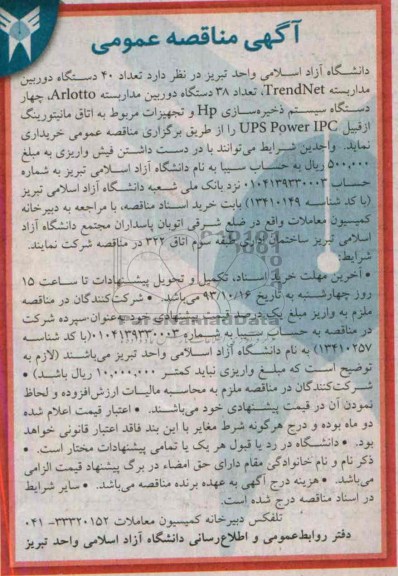 آگهی مناقصه عمومی
دانشگاه آزاد اسلامی واحد تبریز در نظر دارد تعداد ۴۰ دستگاه دوربین
مداربسته TrendNet، تعداد ۳۸ دستگاه دوربین مداربسته Arlotto، چهار
دستگاه سیستم ذخیره‌سازی Hp و تجهیزات مربوط به اتاق مانیتورینگ
ازقبیل UPS Power IPC را از طریق برگزاری مناقصه عمومی خریداری
نماید. واجدین شرایط می‌توانند با در دست داشتن فیش واریزی به مبلغ
۵۰۰,۰۰۰ ریال به حساب سیبا به نام دانشگاه آزاد اسلامی تبریز به شماره
حساب ۰۱۰۴۱۳۹۳۳۰۰۰۳ نزد بانک ملی شعبه دانشگاه آزاد اسلامی تبریز
(با کد شناسه ۱۳۴۱۰۱۴۹) بابت خرید اسناد مناقصه، با مراجعه به دبیرخانه
کمیسیون معاملات واقع در ضلع شرقی اتوبان پاسداران مجتمع دانشگاه آزاد
اسلامی تبریز ساختمان اداری طبقه سوم اتاق ۳۲۲ در مناقصه شرکت نمایند.
شرایط:
• آخرین مهلت خرید اسناد، تکمیل و تحویل پیشنهادات تا ساعت ۱۵
روز چهارشنبه به تاریخ ۹۳/۱۰/۱۶ می‌باشد. • شرکت‌کنندگان در مناقصه
ملزم به واریز مبلغ یک درصد قیمت پیشنهادی خود به‌عنوان سپرده شرکت
در مناقصه به حساب سیبا به شماره ۰۱۰۴۱۳۹۳۳۰۰۰۳ (با کد شناسه
۱۳۴۱۰۲۵۷) به نام دانشگاه آزاد اسلامی واحد تبریز می‌باشند (لازم به
توضیح است که مبلغ واریزی نباید کمتر ۱۰,۰۰۰,۰۰۰ ریال باشد) •
شرکت‌کنندگان در مناقصه ملزم به محاسبه مالیات ارزش‌افزوده و لحاظ
نمودن آن در قیمت پیشنهادی خود می‌باشند. • اعتبار قیمت اعلام شده
دو ماه بوده و درج هرگونه شرط مغایر با این بند فاقد اعتبار قانونی خواهد
بود. • دانشگاه در رد یا قبول هر یک یا تمامی پیشنهادات مختار است. •
ذکر نام و نام خانوادگی مقام دارای حق امضاء در برگ پیشنهاد قیمت الزامی
می‌باشد. • هزینه درج آگهی به عهده برنده مناقصه می‌باشد. • سایر شرایط
در اسناد مناقصه درج شده است.
تلفکس دبیرخانه کمیسیون معاملات ۳۳۳۲۰۱۵۲-۰۴۱
دفتر روابط‌عمومی و اطلاع‌رسانی دانشگاه آزاد اسلامی واحد تبریز